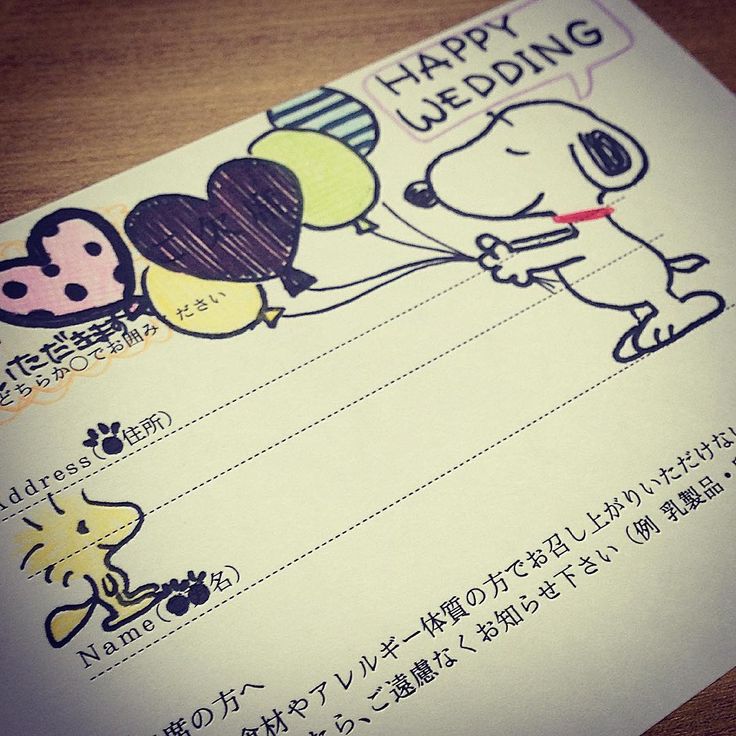 HAPPY
WEDDING
ご欠席
いただきます
どちらか〇でお囲みください
Address(住所)
Name(名)
席の方へ
食材やアレルギー体質の方でお召し上がりいただけない
たら、ご遠慮なくお知らせ下さい（例 乳製品・